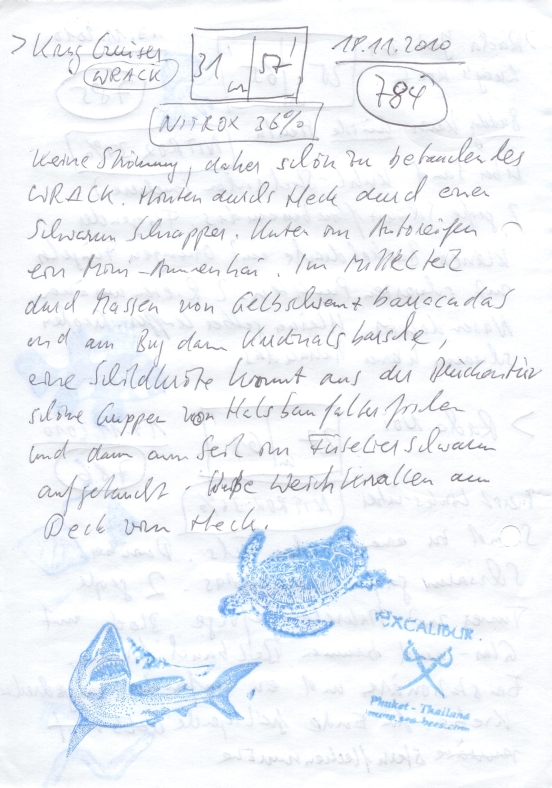 > King Cruiser
WRACK
31 m 57'
18.11.2010
784
NITROX 36%
Keine Strömung, daher schön zu betauchendes
WRACK. Hinten durchs Heck durch einen
Schwarm Schnapper. Unten im Autoreifen
ein Mini-Ammenhai. Im Mittelteil
durch Massen von Gelbschwanzbarracudas
und am Bug dann Kardinalsbarsche,
eine Schildkröte kommt aus der
schöne Gruppen von Halsbandfalterfischen
und dann am Seil im Füselierschwarm
aufgetaucht. Weichkorallen am
Deck vom Heck.
EXCALIBUR
Phuket - Thailand
www.sea-bees.com